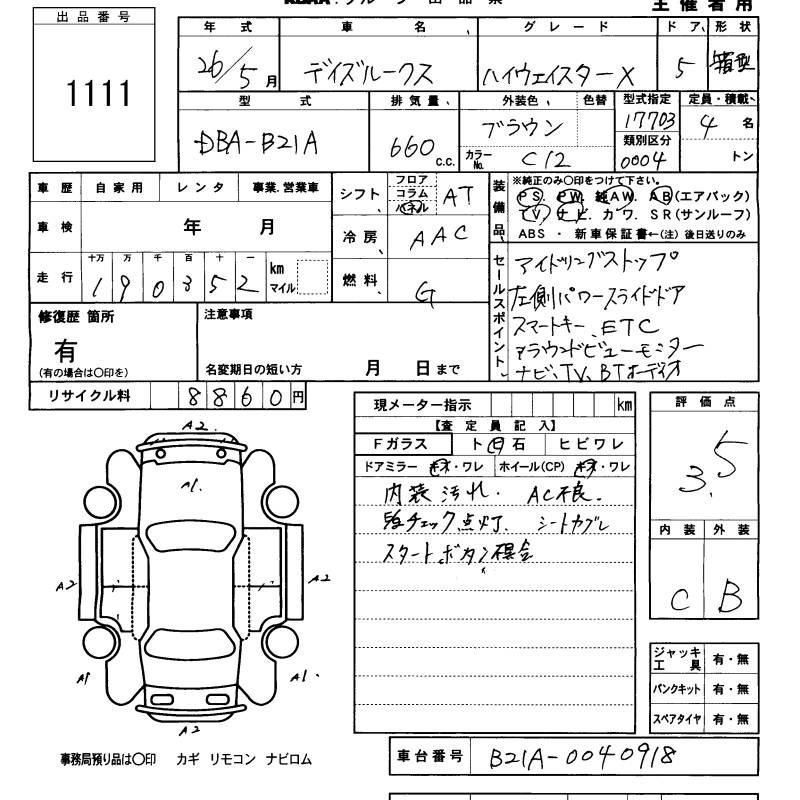 出品番号
1111
主催者用
年式 車名 グレード ドア 形状
26/5月 デイズルークス ハイウェイスターX 5 箱型
型式 排気量 外装色 色替 型式指定 定員・積載
DBA-B21A 660 C.C. ブラウン 17703 4名
カラーNo. C12 類別区分 0004 トン
車歴 自家用 レンタ 事業.営業車
車検 年 月
走行 十万 万 千 百 十 一 km マイル
190352
シフト フロア コラム パネル AT
冷房 AAC
燃料 G
装備品
※純正のみ○印をつけて下さい。
PS. PW. 純AW. AB(エアバック)
TV. ナビ. カワ. SR(サンルーフ)
ABS ・ 新車保証書←(注) 後日送りのみ
セールスポイント
アイドリングストップ
左側パワースライドドア
スマートキー. ETC
アラウンドビューモニター
ナビ、TV、BTオーディオ
修復歴 箇所
有
(有の場合は○印を)
注意事項
名変期日の短い方 月 日まで
リサイクル料 8860円
現メーター指示 km
【査定員記入】
Fガラス ト日石 ヒビワレ
ドアミラー キズ・ワレ ホイール(CP) キズ・ワレ
内装汚れ. AC不良.
チェック点灯. シートカグレ
スタートボタン
評価点
3.5
内装 外装
C B
ジャッキ工具 有・無
パンクキット 有・無
スペアタイヤ 有・無
A2
A1.
A2 A2
A1 A1.
A2
事務局預り品は○印 カギ リモコン ナビロム
車台番号 B21A-0040918